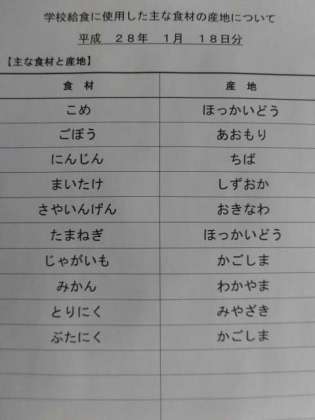 学校給食に使用した主な食材の産地について
平成 28年 1月 18日分
【主な食材と産地】
食 材 産 地
こめ ほっかいどう
ごぼう あおもり
にんじん ちば
まいたけ しずおか
さやいんげん おきなわ
たまねぎ ほっかいどう
じゃがいも かごしま
みかん わかやま
とりにく みやざき
ぶたにく かごしま